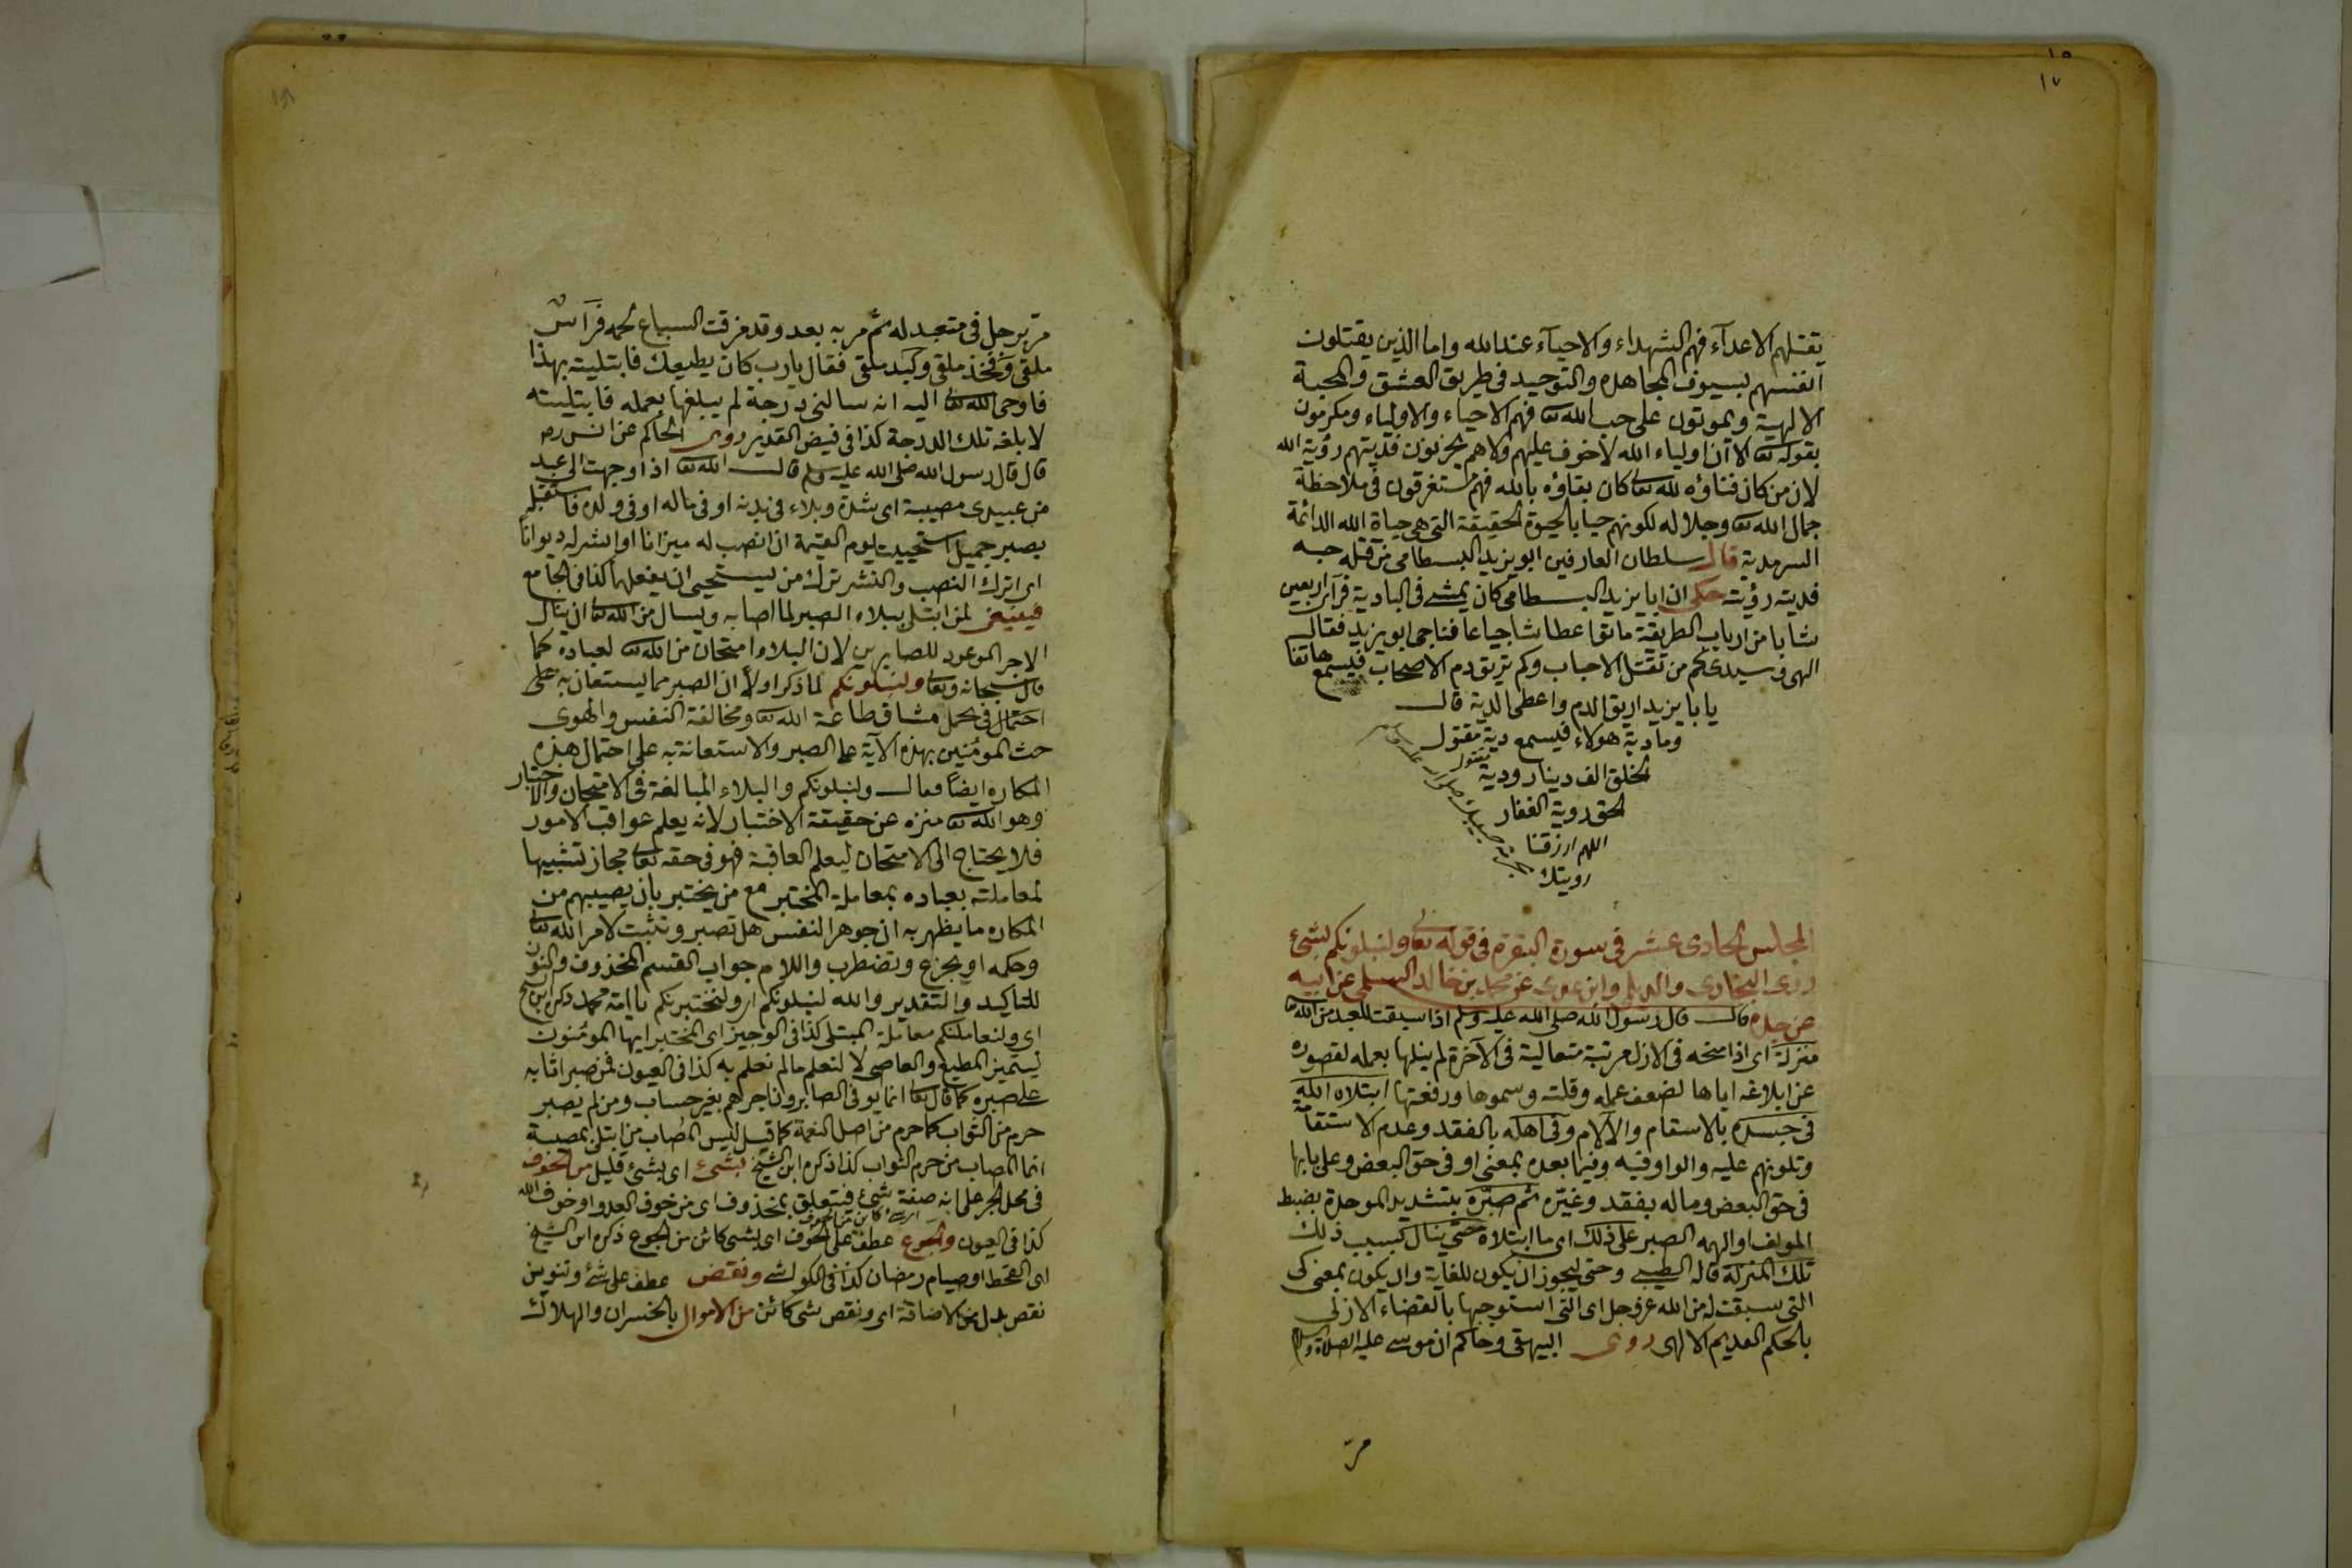 ١٥
١٧
يقتلهم الاعدآء فهم الشهداء والاحيآء عند الله واما الذين يقتلون
انفسهم بسيوف المجاهده والتوحيد فى طريق العشق والمحبة
الالهية ويموتون على حب الله تعا فهم الاحياء والاولياء ومكرمون
بقوله تعا الا ان اولياء الله لا خوف عليهم ولا هم يحزنون فديتهم رؤية الله
لان من كان فناؤه لله تعا كان بقاؤه بالله فهم مستغرقون فى ملاحظة
جمال الله تعا وجلاله لكونهم حيا بالحيوة الحقيقة التى هى حياة الله الدائمة
السرمدية قال سلطان العارفين ابو يزيد البسطامى من قتله حبه
فديته رؤيته حكى ان ابا يزيد البسطامى كان يمشى فى البادية فرآى اربعين
شابا من ارباب الطريقة ماتوا عطاشا جياعا فناجى ابو يزيد فقال
الهى وسيدى كم من تقتل الاحباب وكم تريق دم الاصحاب فيسمع هاتفا
يا با يزيد اريق الدم واعطى الدية قال
وما دية هولاء فيسمع دية مقتول
الخلق الف دينار ودية مقتول
الحق روية الغفار
اللهم ارزقنا
رويتك
المجلس الحادى عشر فى سورة البقره فى قوله تعا ولنبلونكم بشئ
روى البخارى والديلمى وابن عدى عن محمد بن خالد السلمى عن ابيه
عن جده قال قال رسول الله صلى الله عليه وسلم اذا سبقت للعبد من الله تعا
منزلة اى اذا منحه فى الازل مرتبة متعالية فى الآخرة لم ينلها بعمله لقصوره
عن ابلاغه اياها لضعف عمله وقلته وسموها ورفعتها ابتلاه الله
فى جسده بالاسقام والآلام وفى اهله بالفقد وعدم الاستقامة
وتلونهم عليه والواو فيه وفيما بعده بمعنى او فى حق البعض وعلى بابها
فى حق البعض وماله بفقد وغيره ثم صبّره بتشديد الموحدة بضبط
المولف او الهمه الصبر على ذلك اى ما ابتلاه حتى ينال بسبب ذلك
تلك المنزلة قاله الطيبى وحتى يجوز ان يكون للغاية وان يكون بمعنى كى
التى سبقت له من الله عز وجل اى التى استوجبها بالقضاء الازلى
بالحكم القديم الالهى روى البيهقى وحاكم ان موسى عليه الصلاة والسلام
مرّ
مرّ برجل فى متعبد له ثم مر به بعد وقد مزقت السباع لحمه فرآس
ملقى وفخذ ملقى وكبد ملقى فقال يارب كان يطيعك فابتليته بهذا
فاوحى الله تعا اليه انه سالنى درجة لم يبلغها بعمله فابتليته
لابلغه تلك الدرجة كذا فى فيض القدير روى الحاكم عن انس رضه
قال قال رسول الله صلى الله عليه وسلم قال الله تعا اذا وجهت الى عبد
من عبيدى مصيبة اى شدة وبلاء فى بدنه او فى ماله او فى ولده فاستقبله
بصبر جميل استحييت يوم القيمة ان انصب له ميزانا او انشر له ديوانا
اى اترك النصب والنشر ترك من يستحيى ان يفعلهما كذا فى الجامع
فينبغى لمن ابتلى ببلاء الصبر لما اصابه ويسال من الله تعا ان ينال
الاجر الموعود للصابرين لان البلاء امتحان من الله تعا لعباده كما
قال سبحانه وتعا ولنبلونكم لما ذكر اولا ان الصبر مما يستعان به على
احتمال فى تحمل مشاق طاعة الله تعا ومخالفة النفس والهوى
حث المومنين بهذه الآية على الصبر والاستعانة به على احتمال هذه
المكاره ايضا فقال ولنبلونكم والبلاء المبالغة فى الامتحان والاختبار
وهو الله تعا منزه عن حقيقة الاختبار لانه يعلم عواقب الامور
فلا يحتاج الى الامتحان ليعلم العاقبة فهو فى حقه تعا مجاز تشبيها
لمعاملته بعباده بمعاملة المختبر مع من يختبر بان يصيبهم من
المكاره ما يظهر به ان جوهر النفس هل تصبر وتثبت لامر الله تعا
وحكمه او يجزع وتضطرب واللام جواب القسم المحذوف والنون
للتاكيد والتقدير والله لنبلونكم اى ولنختبرنكم يا امة محمد ذكره ابن الشيخ
اى ولنعاملنكم معاملة المبتلى كذا فى الوجيز اى المختبر ايها المومنون
ليتميز المطيع والعاصى لا لنعلم ما لم نعلم به كذا فى العيون فمن صبر اثابه
على صبره كما قال تعا انما يوفى الصابرون اجرهم بغير حساب ومن لم يصبر
حرم من الثواب كما حرم من اصل النعمة كما قيل ليس المصاب من ابتلى بمصيبة
انما المصاب من حرم الثواب كذا ذكره ابن الشيخ بشئ اى بشئ قليل من الخوف
فى محل الجر على انه صفة شئ فيتعلق بمحذوف اى من خوف العدو او خوف الله
كذا فى العيون والجوع عطف على الخوف اى بشئ كائن من الجوع ذكره ابن الشيخ
اى القحط او صيام رمضان كذا فى الكواشى ونقص عطف على شئ وتنوين
نقص بدل من الاضافة اى ونقص شئ كائن من الاموال بالخسران والهلاك